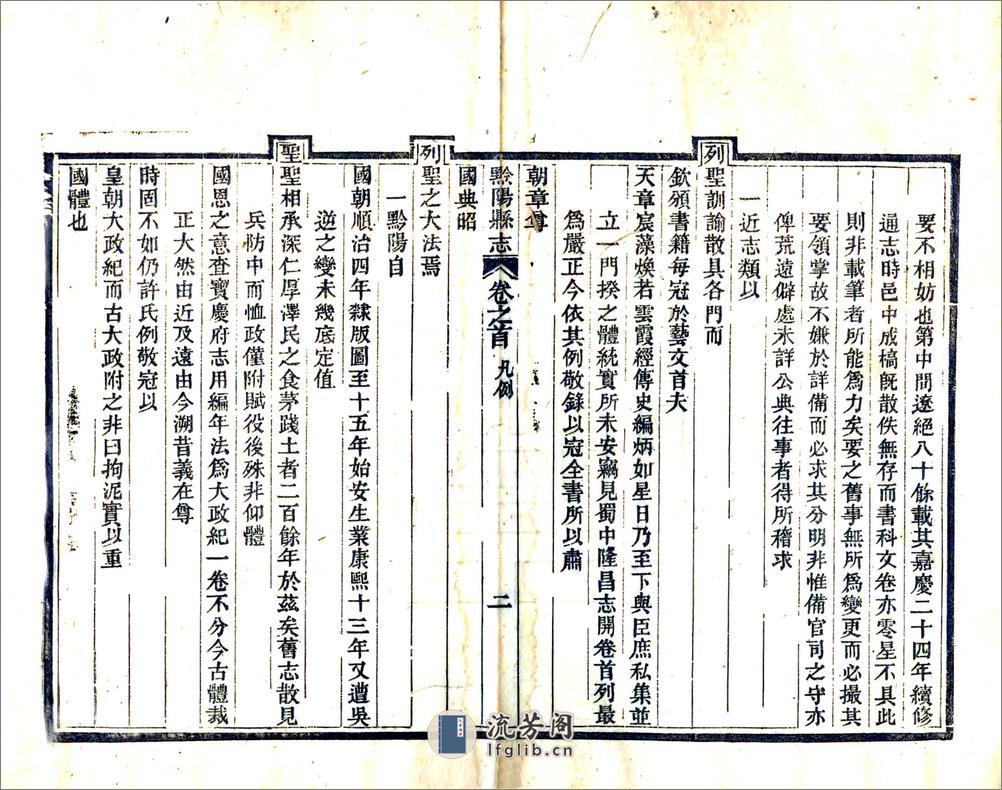 要不相妨也第中間遼絕八十餘載其嘉慶二十四年續修
通志時邑中成槁旣散佚無存而書科文卷亦零星不具此
則非載筆者所能爲力矣要之舊事無所爲變更而必撮其
要領掌故不嫌於詳備而必求其分明非惟備官司之守亦
俾荒遠僻處未詳公典往事者得所稽求
一近志類以
列聖訓諭散具各門而
欽頒書籍每冠於藝文首夫
天章宸藻煥若雲霞經傳史編炳如星日乃至下與臣庶私集並
立一門揆之體統實所未安竊見蜀中隆昌志開卷首列最
爲嚴正今依其例敬錄以冠全書所以肅
朝章尊
黔陽縣志 卷之首 凡例 二
國典昭
列聖之大法焉
一黔陽自
國朝順治四年隸版圖至十五年始安生業康熙十三年又遭吳
逆之變未幾底定值
聖聖相承深仁厚澤民之食茅踐土者二百餘年於茲矣舊志散見
兵防中而恤政僅附賦役後殊非仰體
國恩之意查寶慶府志用編年法爲大政紀一卷不分今古體裁
正大然由近及遠由今溯昔義在尊
時固不如仍許氏例敬冠以
皇朝大政紀而古大政附之非曰拘泥實以重
國體也
流芳阁
lfglib.cn